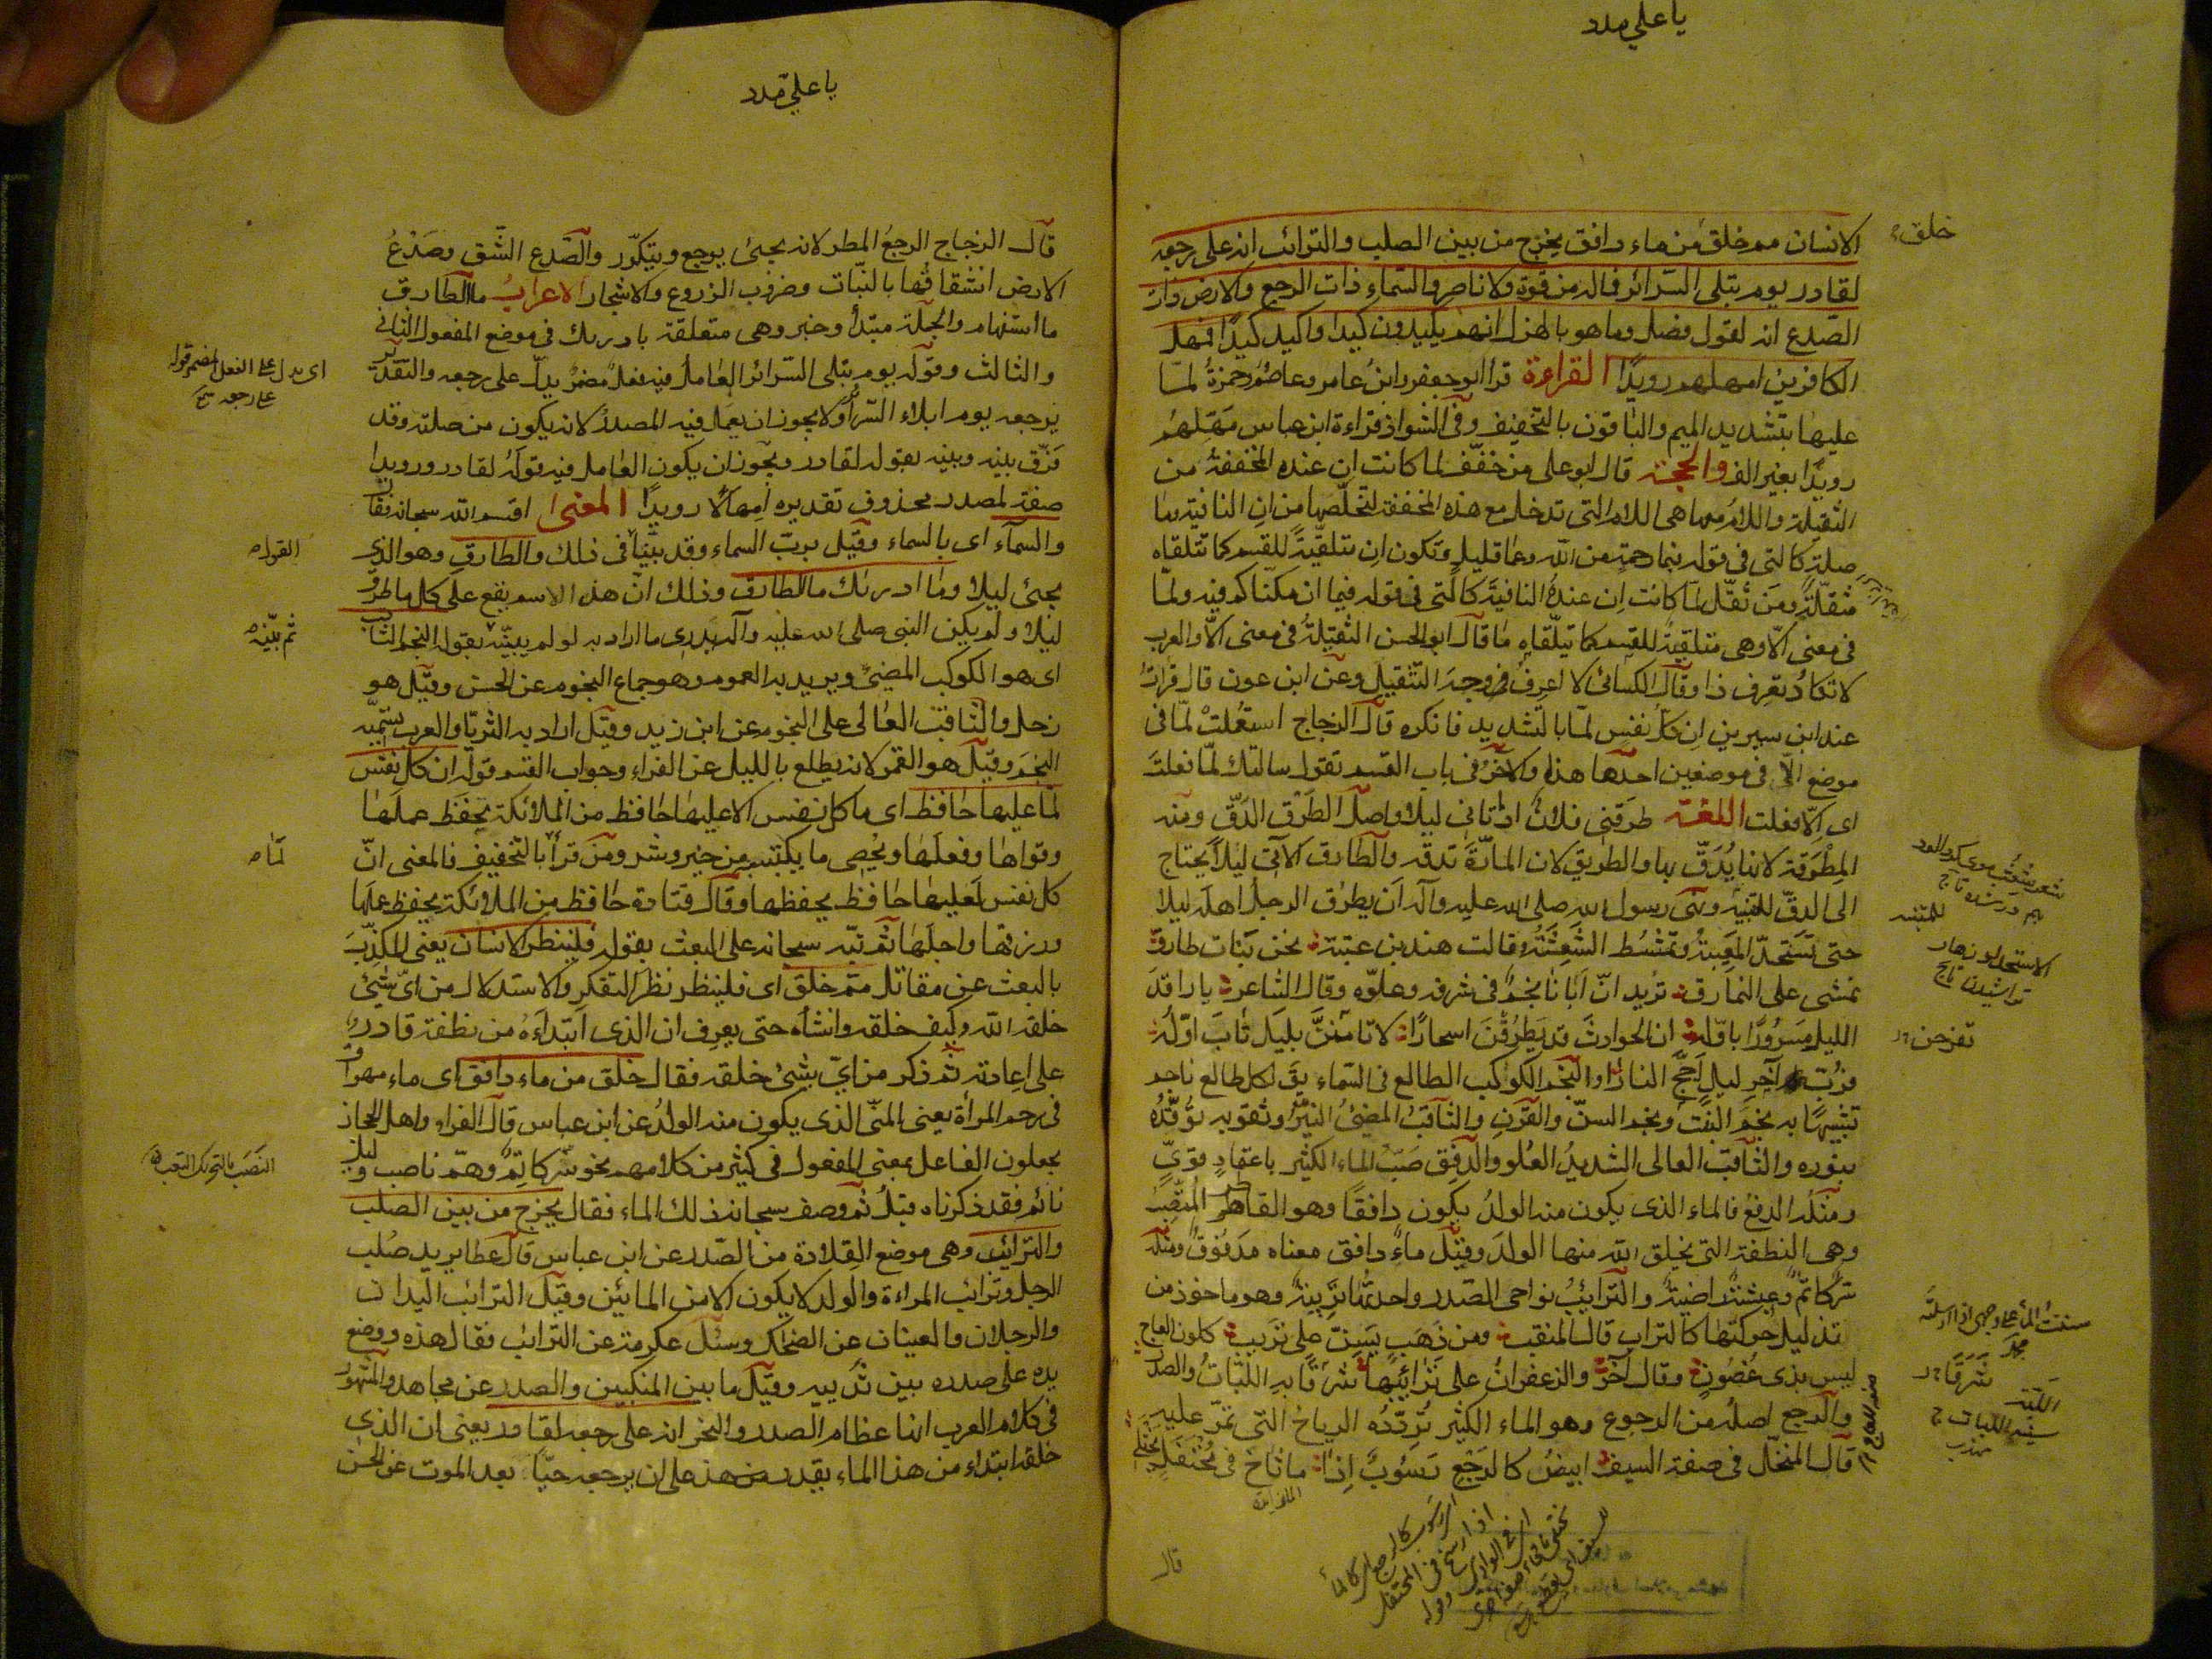 يا علي مدد
الانسان مم خلق من ماء دافق يخرج من بين الصلب والترائب انه على رجعه
لقادر يوم تبلى السّرائر فما له من قوة ولا ناصر والسّماء ذات الرجع والارض ذات
الصّدع انه لقول فصل وما هو بالهزل انهم يكيدون كيدا واكيد كيدًا فمهل
الكافرين امهلهم رويدًا القراءة قرأ ابو جعفر وابن عامر وعاصم وحمزة لمّا
عليها بتشديد الميم والباقون بالتخفيف وفي الشواذ قراءة ابن عباس مَهِّلهُم
رويدًا بغير الف والحجة قال ابو علي من خفّف لما كانت ان عنده المخففة من
الثقيلة واللام معها هي اللام التي تدخل مع هذه المخففة لتخلّصها من ان النافية وما
صلة كالتي في قوله فبما رحمة من الله وعما قليل وتكون ان متلقّيةً للقسم كما تتلقاه
مثقلّةً ومن ثقّل لمّا كانت ان عنده النافية كالتي في قوله فيما ان مكنّاكم فيه ولمّا
في معنى الّا وهي متلقية للقسم كما تتلقاه ما قال ابو الحسن الثقيلة في معنى الّا والعرب
لا تكاد تعرف ذا وقال الكسائي لا اعرف وجه التثقيل وعن ابن عون قال قرأت
عند ابن سيرين ان كل نفس لمّا بالتشديد فانكره قال الزجاج استعملت لمّا في
موضع الّا في موضعين احدهما هذا والآخر في باب القسم تقول سالتك لمّا فعلت
اى الّا فعلت اللغة طرقني فلان اذا اتاني ليلا واصل الطَرْق الدّقّ ومنه
المِطْرَقة لانه يُدَقّ بها والطريق لان المارّة تدقّه والطارق الآتى ليلاً يحتاج
الى الدقّ للتنبيه ونهى رسول الله صلى الله عليه وآله ان يطرق الرجل اهله ليلا
حتى تستحدّ المغيبةُ وتمتشط الشَعِثَةُ وقالت هند بن عتبة نحن بنات طارق
نمشى على النمارق تريد انّ ابانا نجم في شرفه وعلوّه وقال الشاعر يا راقد
الليل مسرُورًا باوّله ان الحوادث قد يطرُقْنَ اسحارًا لا تامَننَّ بليل طاب اوّلُه
فرُبّ آخرِ ليلٍ اجّج النارا والنجم الكوكب الطالع في السّماء يق لكل طالع ناجم
تشبيهًا به نجم النبت ونجم السنّ والقرن والثاقبُ المضئُ النيّرُ وثقوبه توقّدُه
بنوره والثاقب العالى الشديد العُلو والدّفق صَبّ الماء الكثير باعتماد قوىّ
ومثله الدفع فالماء الذى يكون منه الولد يكون دافقًا وهو القاطر المُنصّب
وهي النطفة التي يخلق الله منها الولد وقيل ماء دافق معناه مدفوقٌ ومثله
سّركاتم وعيشة راضية والترائبُ نواحى الصّدر واحدتها تريبة وهو ماخوذ من
تذليل حركتها كالتراب قال المثقب ومن ذهب يسنّ على تريب كلون العاج
ليس بذى غضون وقال آخر والزعفران على ترائبها شرقًا به اللبّات والصدر
والرجع اصله من الرجوع وهو الماء الكثير تُردّده الرياح التي تمرّ عليه
قال المنخّل في صفة السيف ابيض كالرجع رسوب اذا ما ثاخ في مُحتفل يختلي
خلق
للمتنبه
تفزحن
شَرِقًا
قال
يا علي مدد
قال الزجاج الرجع المطر لانه يجئ ويرجع ويتكرّر والصّدع الشّق وصَدْعُ
الارض انشقاقها بالنّبات وضروب الزروع والاشجار الاعراب ما الطارق
ما استفهام والجملة مبتدأ وخبر وهي متعلقة بادريك في موضع المفعول الثاني
والثالث وقوله يوم تبلى السّرائر العامل فيه فعل مضمر يدلّ على رجعه والتقدير
يرجعه يوم ابلاء السّرائر ولا يجوز ان يعمل فيه المصدر لانه يكون من صلته وقد
فرّق بينه وبينه بقوله لقادر ويجوز ان يكون العامل فيه قوله لقادر ورويدا
صفة لمصدر محذوف تقديره امهالًا رويدًا المعنى اقسم الله سبحانه فقال
والسمآء اى بالسماء وقيل برب السماء وقد بيّنّا في ذلك والطارق وهو الذى
يجئ ليلا وما ادريك ما الطارق وذلك انّ هذا الاسم يقع على كل ما طرق
ليلا ولم يكن النبي صلى الله عليه وآله يدرى ما اراد به لو لم يبيّنه بقوله النجم الثاقب
اى هو الكوكب المضئ ويريد به العموم وهو جماع النجوم عن الحسن وقيل هو
زحل والثاقب العالى على النجوم عن ابن زيد وقيل اراد به الثريّا والعرب تسمّيه
النجم وقيل هو القمر لانه يطلع بالليل عن الفراء وجواب القسم قوله ان كل نفس
لما عليها حافظ اى ما كل نفس الا عليها حافظ من الملائكة يحفظ عملها
وقولها وفعلها ويُحصى ما يكتسبه من خير وشر ومن قرأ بالتخفيف فالمعنى انّ
كل نفس لعليها حافظ يحفظها وقال قتادة حافظ من الملائكة يحفظ عملها
ورزقها واجلها ثم نبّه سبحانه على البعث بقوله فلينظر الانسان يعنى المكذّب
بالبعث عن مقاتل ممّ خلق اى فلينظر نظر التفكر والاستدلال من اىّ شئ
خلقه الله وكيف خلقه وانشأه حتى يعرف ان الذى ابتدأه من نطفة قادر
على اعادته ثم ذكر من اىّ شئ خلقه فقال خلق من ماء دافق اى ماء مهراق
في رحم المرأة يعنى المنيّ الذى يكون منه الولد عن ابن عباس قال الفراء واهل الحجاز
يجعلون الفاعل بمعنى المفعول في كثير من كلامهم نحو سّر كاتم وهمّ ناصب وليل
نائم فقد ذكرناه قبل ثم وصف سبحانه ذلك الماء فقال يخرج من بين الصلب
والترائب وهي موضع القلادة من الصّدر عن ابن عباس قال عطا يريد صُلب
الرجل وترائب المراءة والولد لا يكون الا من المائين وقيل الترائب اليدان
والرجلان والعينان عن الضحّاك وسئل عكرمة عن الترائب فقال هذه ووضع
يده على صدره بين ثدييه وقيل ما بين المنكبين والصدر عن مجاهد والمشهور
في كلام العرب انها عظام الصدر والنحر انه على رجعه لقادر يعنى ان الذى
خلقه ابتداء من هذا الماء يقدر على ان يرجعه حيّا بعد الموت عن الحسن
اى يدل على الفعل المضمر قوله
على رجعه
القول
ثم بيّنه
لمّا